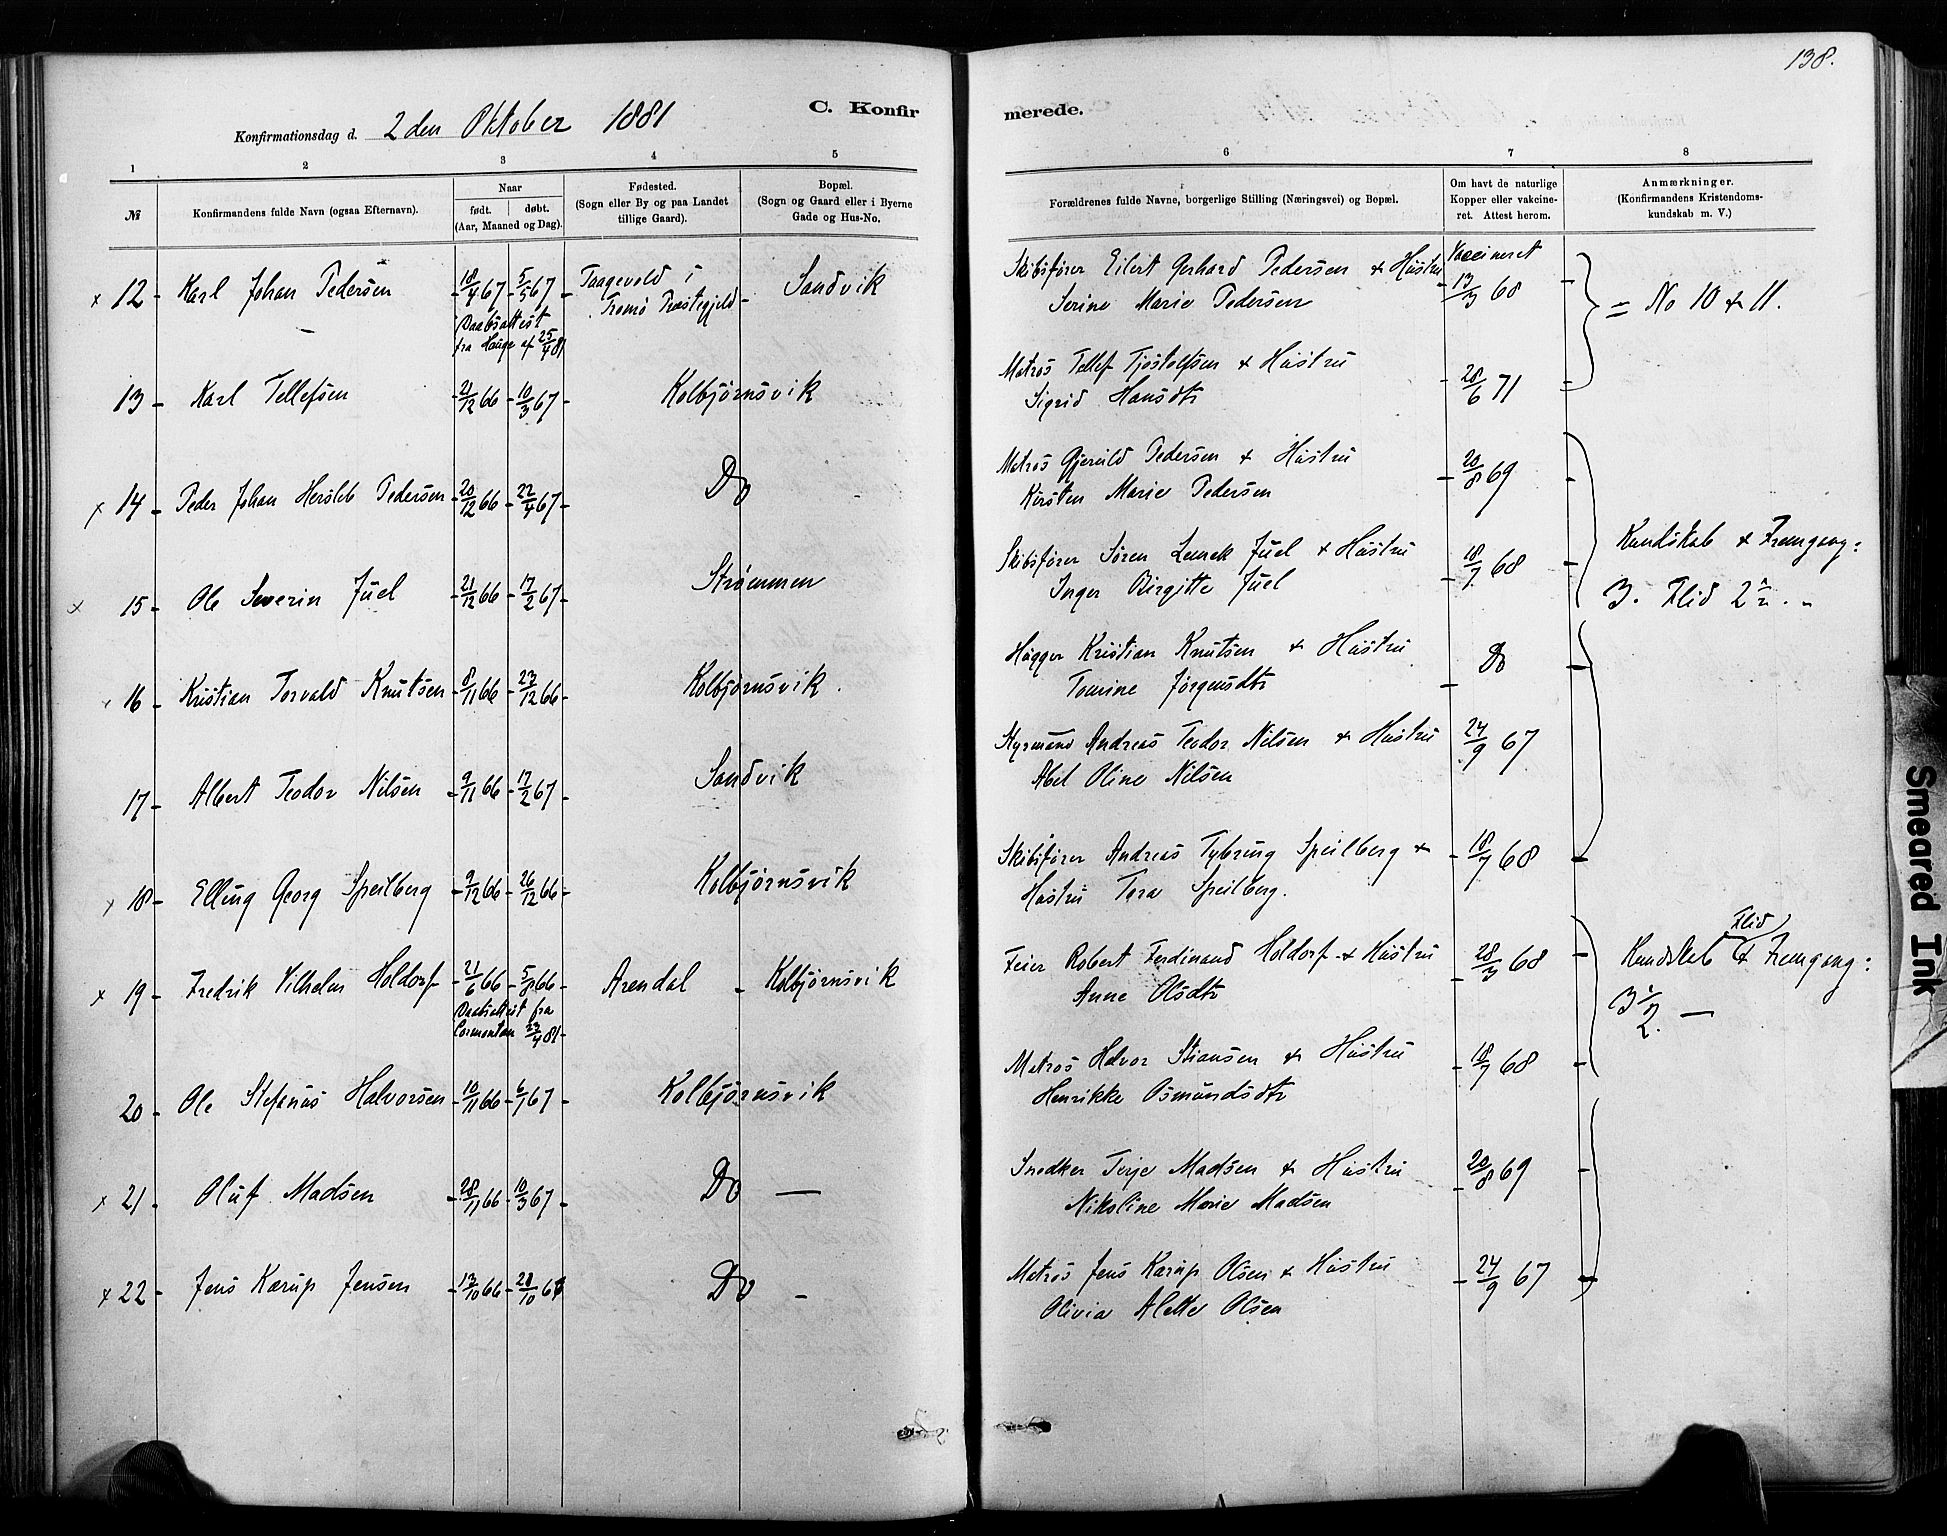 138.
C. Konfir
merede.
Konfirmationsdag d. 2 den Oktober 1881
1 2 3 4 5 6 7 8
№ Konfirmandens fulde Navn (ogsaa Efternavn). Naar født. døbt. (Aar, Maaned og Dag). Fødested. (Sogn eller By og paa Landet tillige Gaard). Bopæl. (Sogn og Gaard eller i Byerne Gade og Hus-No. Forældrenes fulde Navne, borgerlige Stilling (Næringsvei) og Bopæl. Om havt de naturlige Kopper eller vakcineret. Attest herom. Anmærkninger. (Konfirmandens Kristendomskundskab m. V.)
x 12 - Karl Johan Pedersen 18/4 67 - 5/5 67 Tromø Præstegjeld - Sandvik Skibsfører Eilert Gerhard Pedersen & Hustru Vaccineret
Serine Marie Pedersen 13/3 68 = No 10 & 11.
Daabsattest
fra Hauge af 25/4 81
13 - Karl Tellefsen 21/12 66 - 10/3 67 - Kolbjörnsvik Matros Tellef Tjöstolfsen & Hustru 28/6 71
Sigrid Hansdtr
x 14 - Peder Johan Hersleb Pedersen 20/12 66 - 22/4 67 - Do Matros Gjeruld Pedersen & Hustru 20/8 69
Kirsten Marie Pedersen
x 15 - Ole Severin Juel 21/12 66 - 17/2 67 Strømmen Skibsfører Søren Lemek Juel & Hustru 18/7 68 Kundskab & Fremgang:
Inger Birgitte Juel 3. Flid 2
16 - Kristian Torvald Knutsen 8/11 66 - 23/12 66 Kolbjörnsvik. Hugger Kristian Knutsen & Hustru Do
Tomine Jörgensdtr
17 - Albert Teodor Nilsen 9/11 66 - 17/2 67 Sandvik Styrmand Andreas Teodor Nilsen & Hustru 24/9 67
Abel Oline Nilsen
18 - Elling Georg Speilberg 9/12 66 - 26/12 66 - Kolbjørnsvik Skibsfører Andreas Tybring Speilberg & 18/7 68
Hustru Tora Speilberg.
x 19 - Fredrik Vilhelm Holdorf 21/6 66 - 5/8 66 Arendal - Kolbjørnsvik Feier Robert Ferdinand Holdorf & Hustru 28/3 68 Kundskab Flid & Fremgang:
Anne Olsdtr 3 1/2. —
Daabsattest fra
23/4 81
20 - Ole Stefanus Halvorsen 10/11 66 - 6/1 67 - Kolbjørnsvik Matros Halvor Stiansen & Hustru 18/7 68
Henrikke Osmundsdtr
x 21 - Oluf Madsen 28/11 66 - 10/3 67 - Do — Snedker Terje Madsen & Hustru 20/8 69
Nikoline Marie Madsen
x 22 - Jens Karup Jensen 13/10 66 - 28/10 66 Do - Matros Jens Karup Olsen & Hustru 24/9 67
Olivia Alette Olsen
Smeared Ink